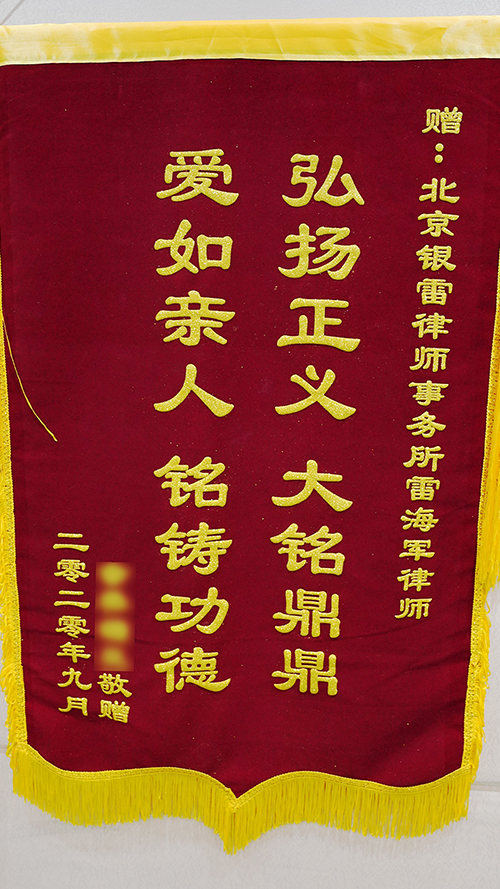 赠：北京银雷律师事务所雷海军律师
弘扬正义 大铭鼎鼎
爱如亲人 铭铸功德
敬赠
二零二零年九月